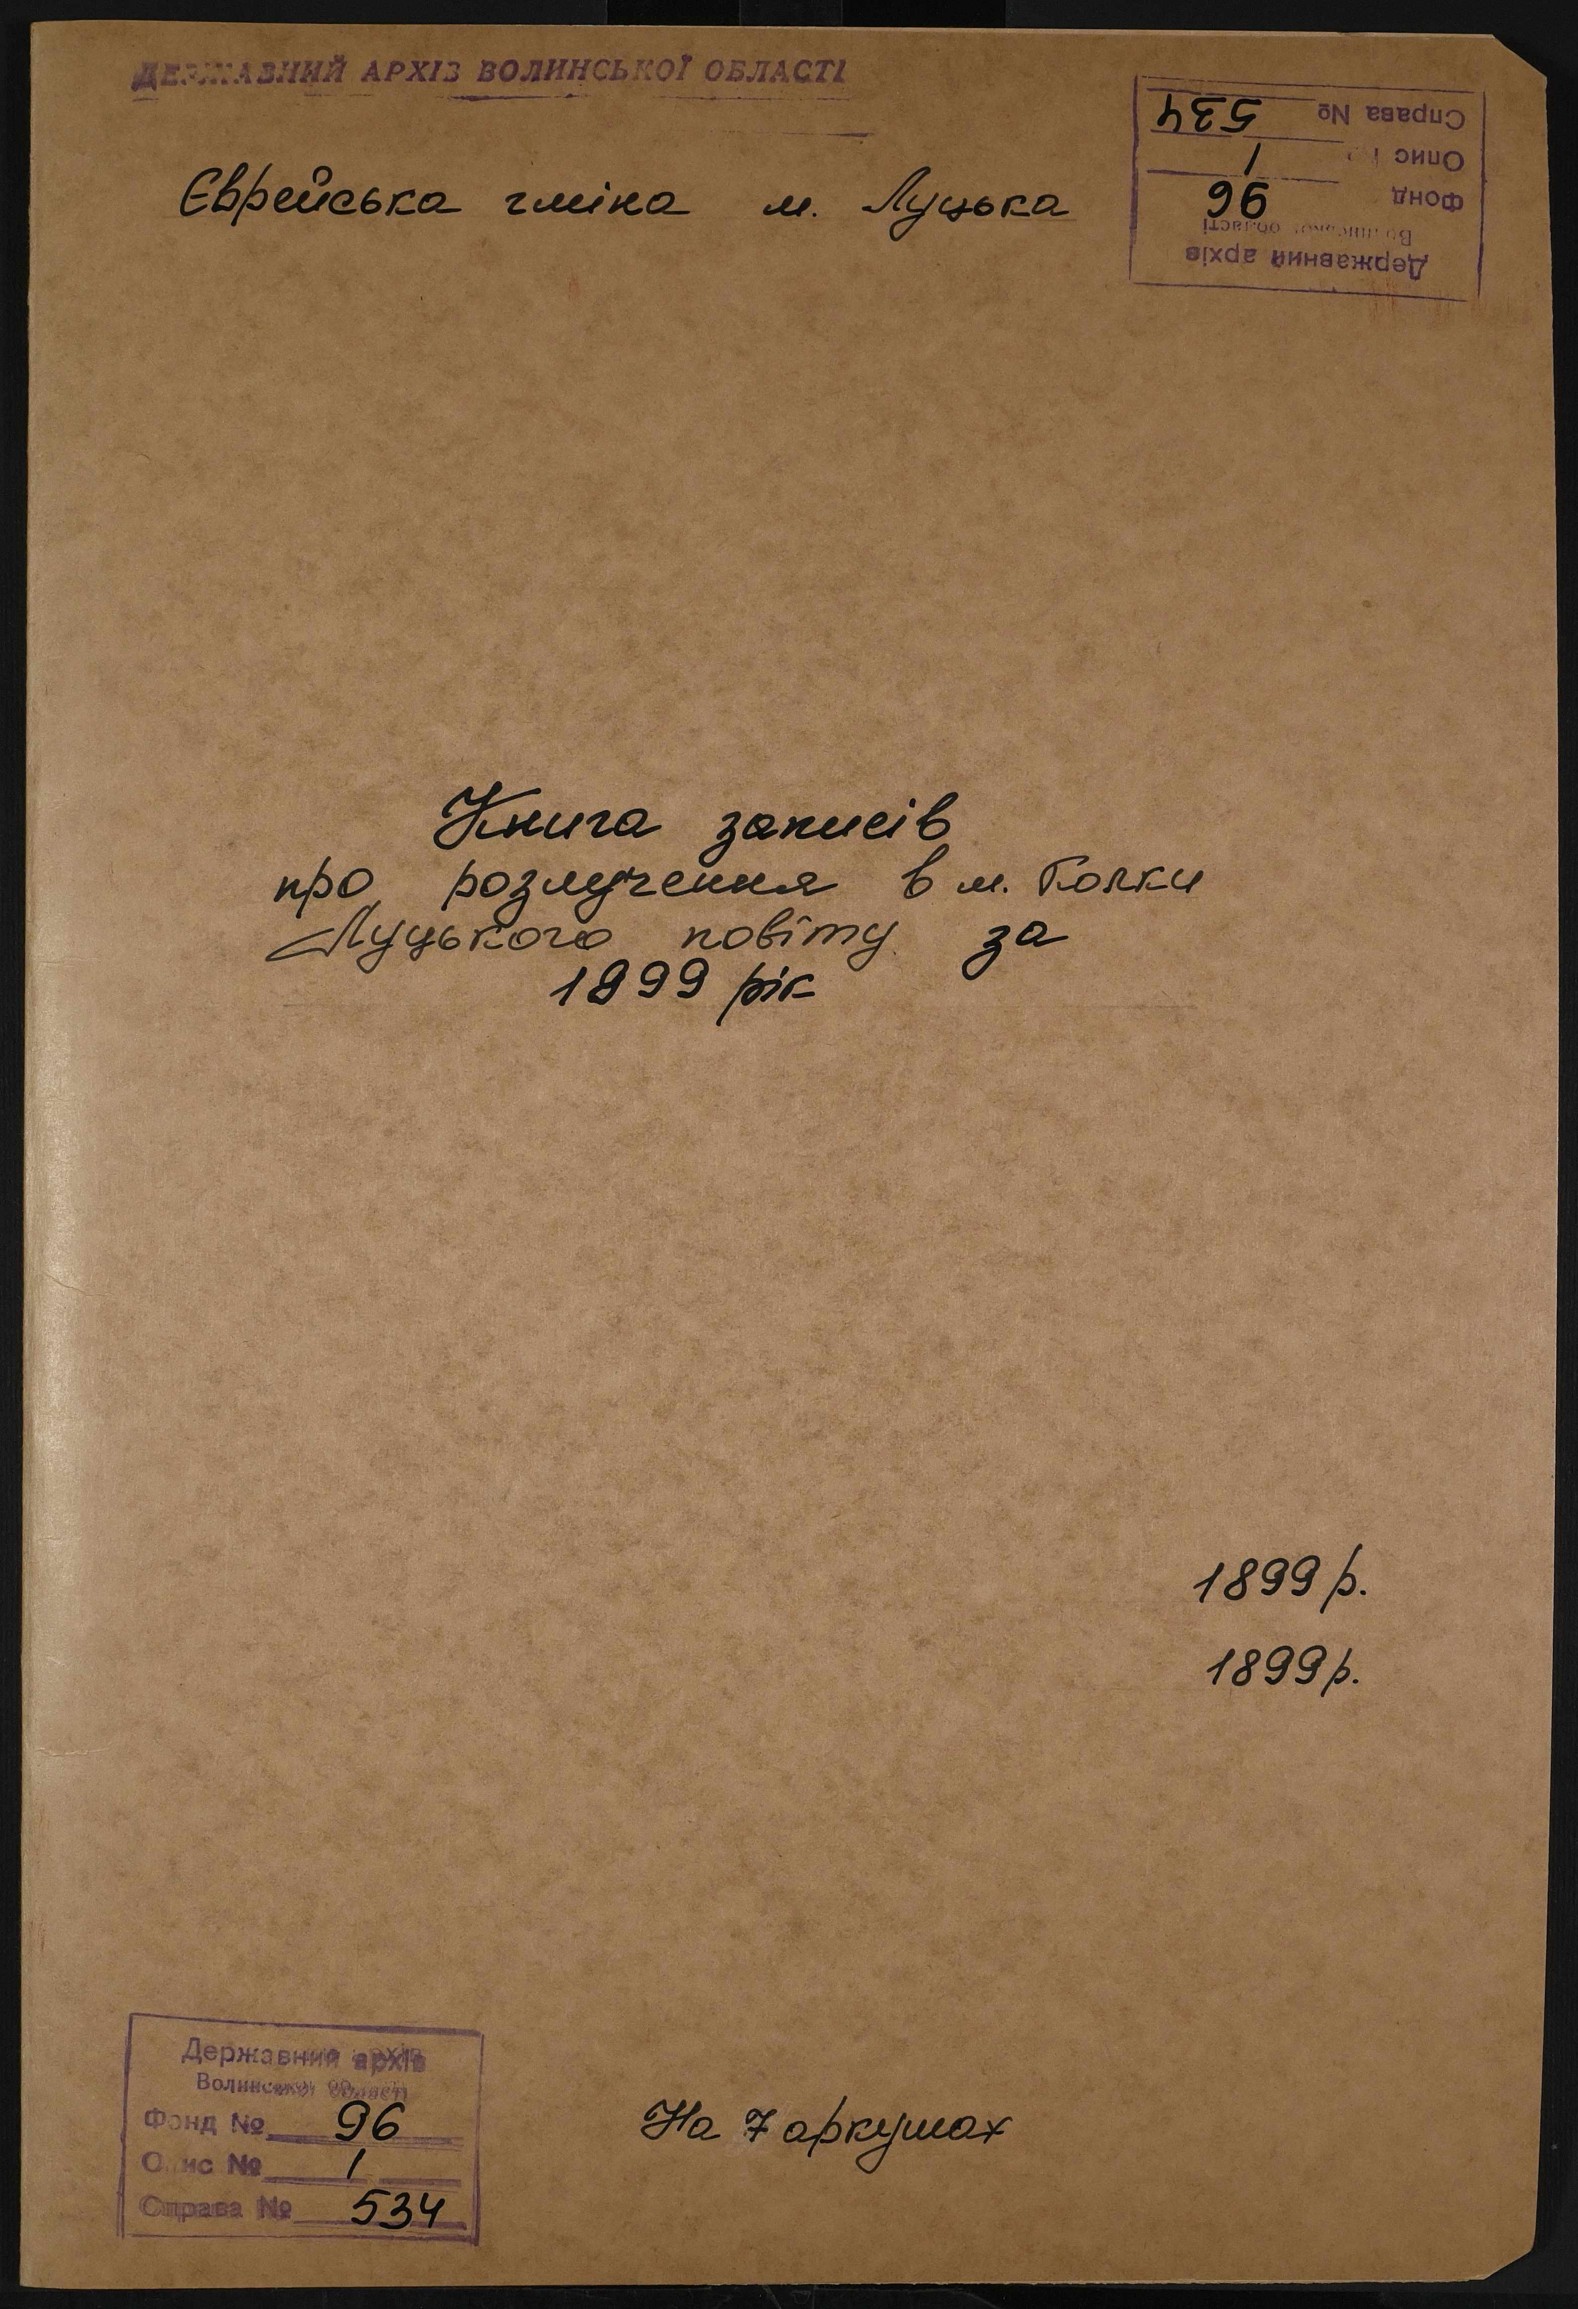 ДЕРЖАВНИЙ АРХІВ ВОЛИНСЬКОЇ ОБЛАСТІ
Справа № 534
Опис № 1
Фонд 96
Волинської області
Державний архів
Єврейська гміна м. Луцька
Книга записів
про розлучення в м. Колки
Луцького повіту за
1899 рік
1899 р.
1899 р.
Державний архів
Волинської області
Фонд № 96
Опис № 1
Справа № 534
На 7 аркушах